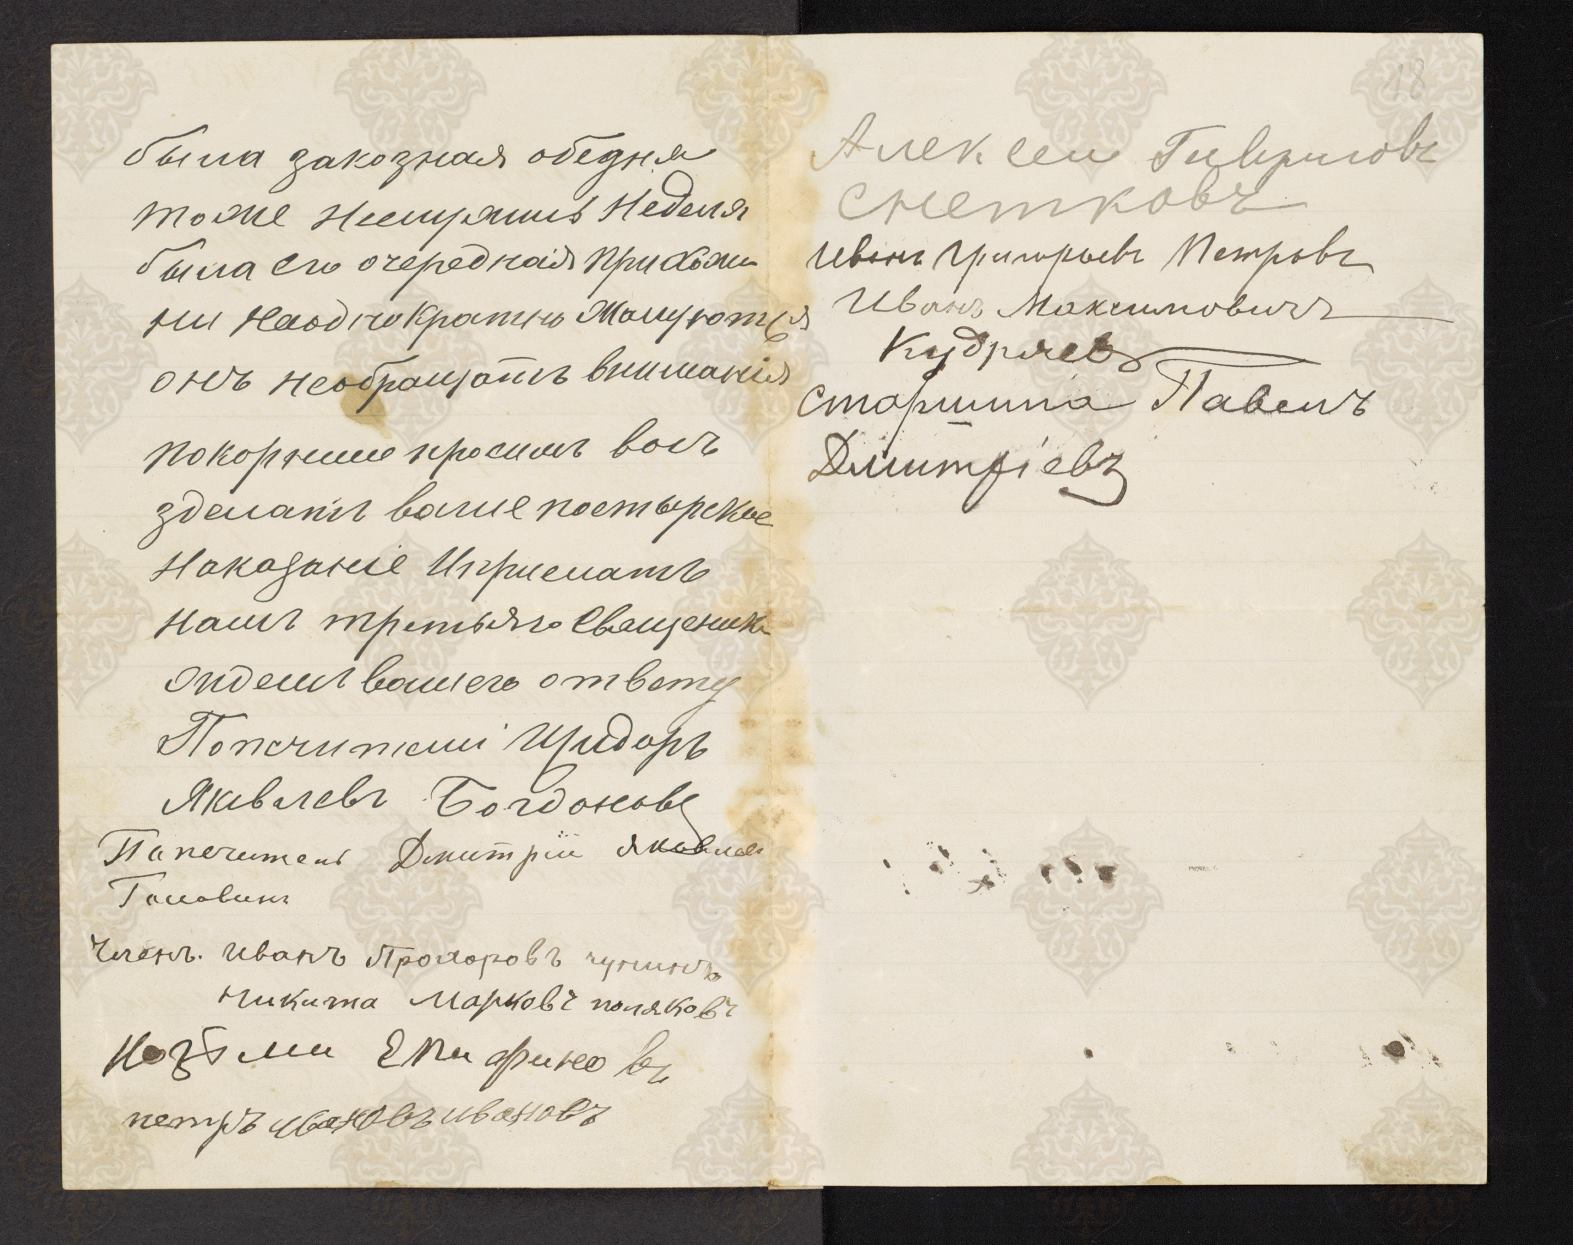 была заказная обедня
тоже неслужилъ Неделя
была его очередная прихожа
ни Наоднократно Жалуются
онъ необращатъ внимания
покорнише просимъ васъ
зделать ваше пастырское
Наказание Иприслать
намъ третьяго Священика
ждемъ вашего ответу
Попечители Исидоръ
Яковлевъ Богдановъ
Папечитель Дмитрий Яковлев
Головинъ
Членъ. Иванъ Прохоровъ чунинъ
Никита Марковъ поляковъ
Епифановъ
петръ ивановъ ивановъ
18
Алексеи Гавриловъ
Снетковъ
Иванъ Григорьевъ Петровъ
Иванъ Максимовичъ
Кудряев
старшина Павелъ
Дмитріевъ